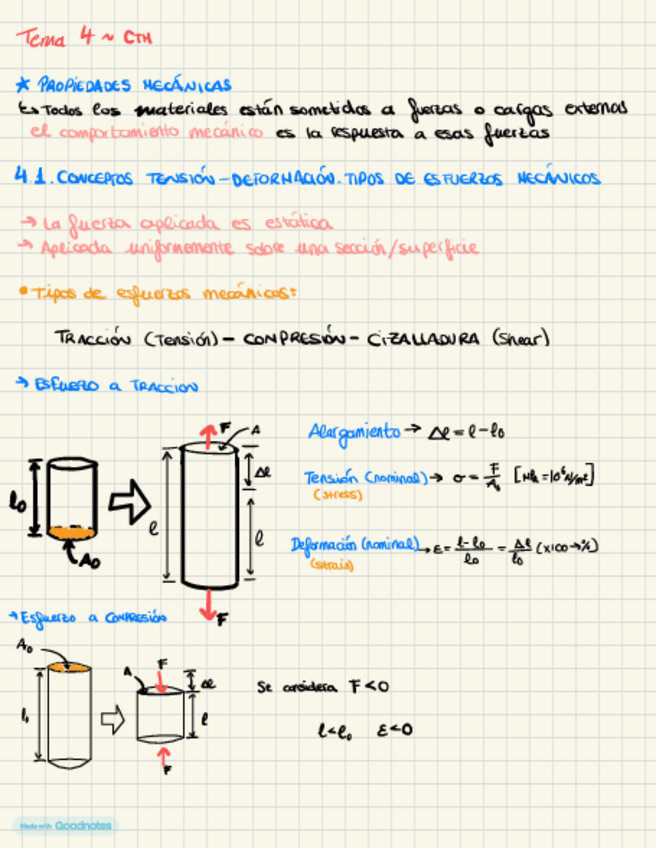 Tema 4 ~ CTM
* PROPIEDADES MECÁNICAS
↳ Todos los materiales están sometidos a fuerzas o cargas externas
el comportamiento mecánico es la respuesta a esas fuerzas
4.1. CONCEPTOS TENSIÓN-DEFORMACIÓN. TIPOS DE ESFUERZOS MECÁNICOS
→ La fuerza aplicada es estática
→ Aplicada uniformemente sobre una sección/superficie
• Tipos de esfuerzos mecánicos:
TRACCIÓN (Tensión) - COMPRESIÓN - CIZALLADURA (Shear)
→ ESFUERZO A TRACCION
F
A
Δl
l₀
l
l
A₀
F
Alargamiento → Δl = l - l₀
Tensión (nominal) → σ = F/A₀ [MPa = 10⁶ N/m²]
(stress)
Deformación (nominal) → ε = l - l₀/l₀ = Δl/l₀ (x100 → %)
(strain)
→ Esfuerzo a COMPRESIÓN
A₀
A
F
Δl
l
F
Se considera F < 0
l < l₀ ε < 0
Made with Goodnotes